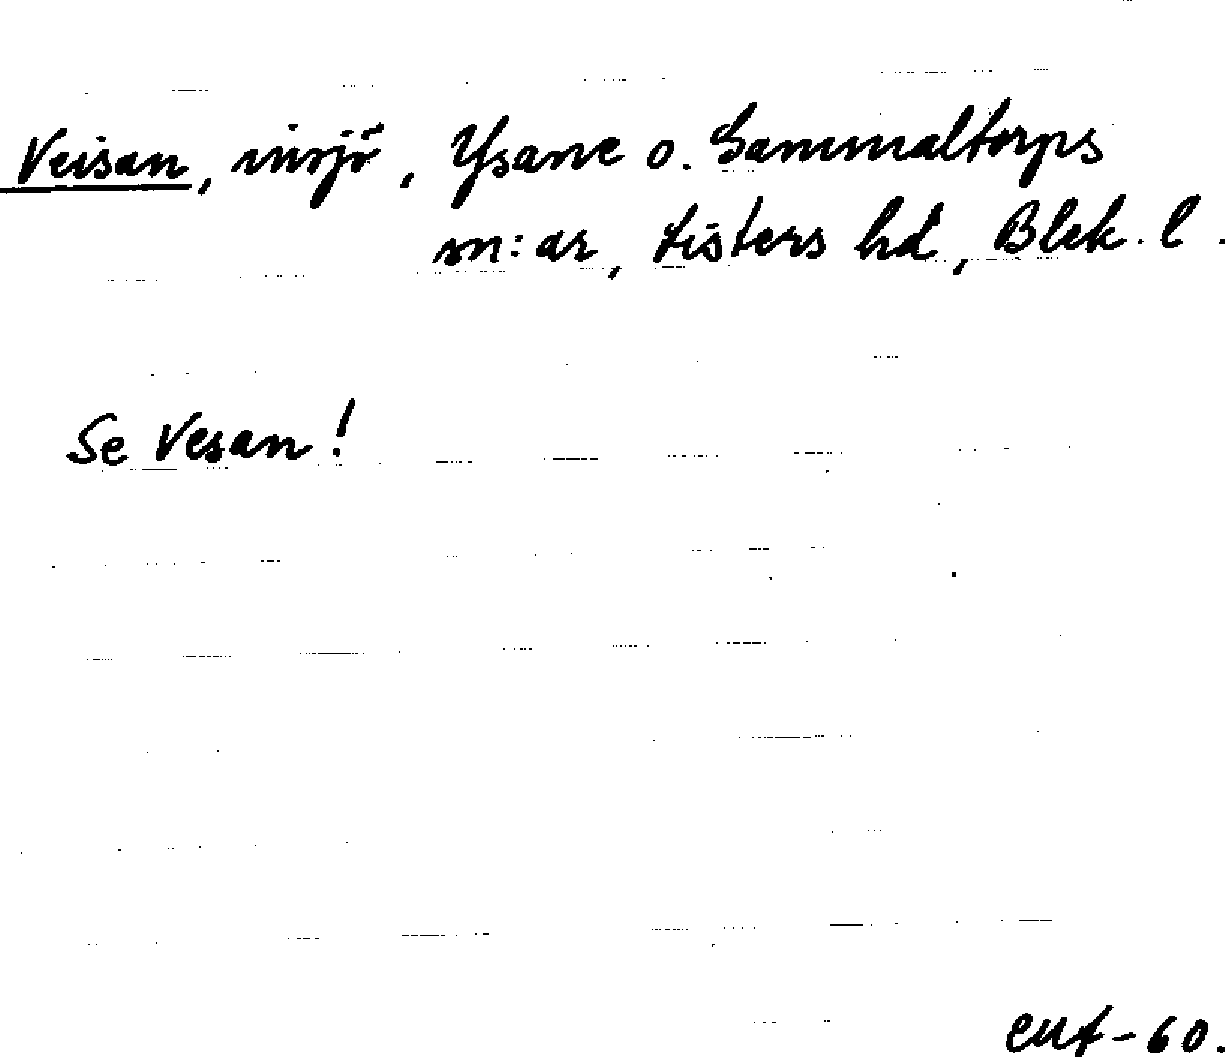 Veisan, insjö, Ysane o. Gammaltorps
sn:ar, Listers hd, Blek. l.
Se Vesan!
-60.